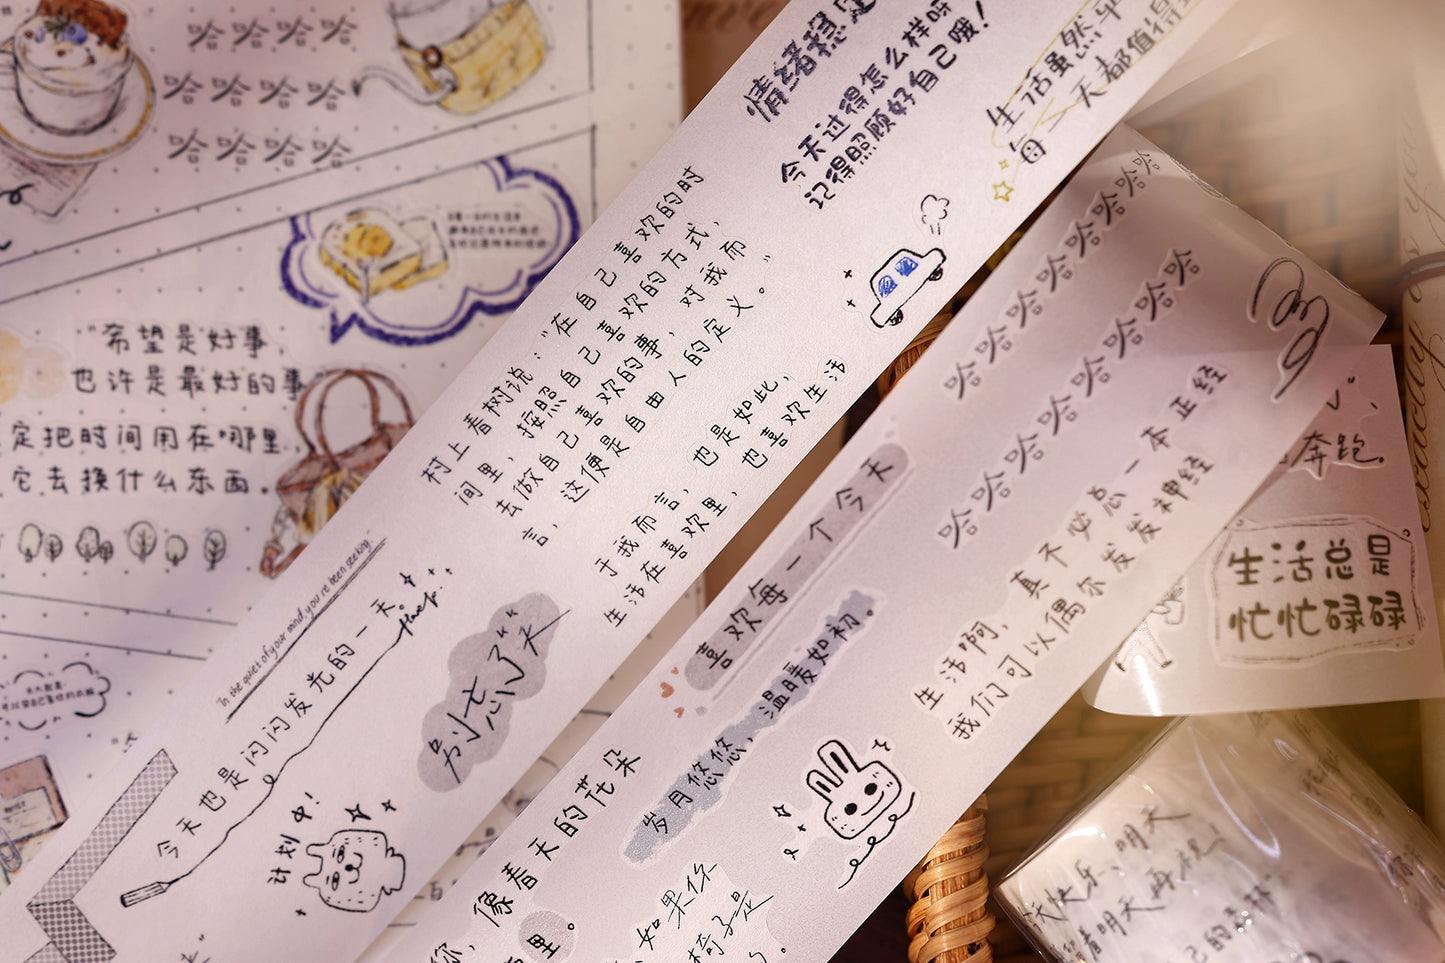 哈哈哈哈
哈哈哈哈
哈哈哈哈
"希望是好事,
也许是最好的事"
定把时间用在哪里,
它去换什么东西。
情绪稳定
今天过得怎么样呀
记得照顾好自己哦!
生活虽然平
每一天都值得
村上春树说:"在自己喜欢的时
间里,按照自己喜欢的方式,
去做自己喜欢的事,对我而
言,这便是自由人的定义。"
于我而言,也是如此,
生活在喜欢里,也喜欢生活
In the quiet of your mind, you're been seeking.
今天也是闪闪发光的一天。
别忘了笑
计划中!
哈哈哈哈哈哈哈
哈哈哈哈哈哈哈哈
喜欢每一个今天
岁月悠悠,温暖如初。
生活啊,真不必总一本正经
我们可以偶尔发发神经
你,像春天的花朵
里。
如果你
椅子是
奔跑。
生活总是
忙忙碌碌
快乐,明天
着明天再祝
己的